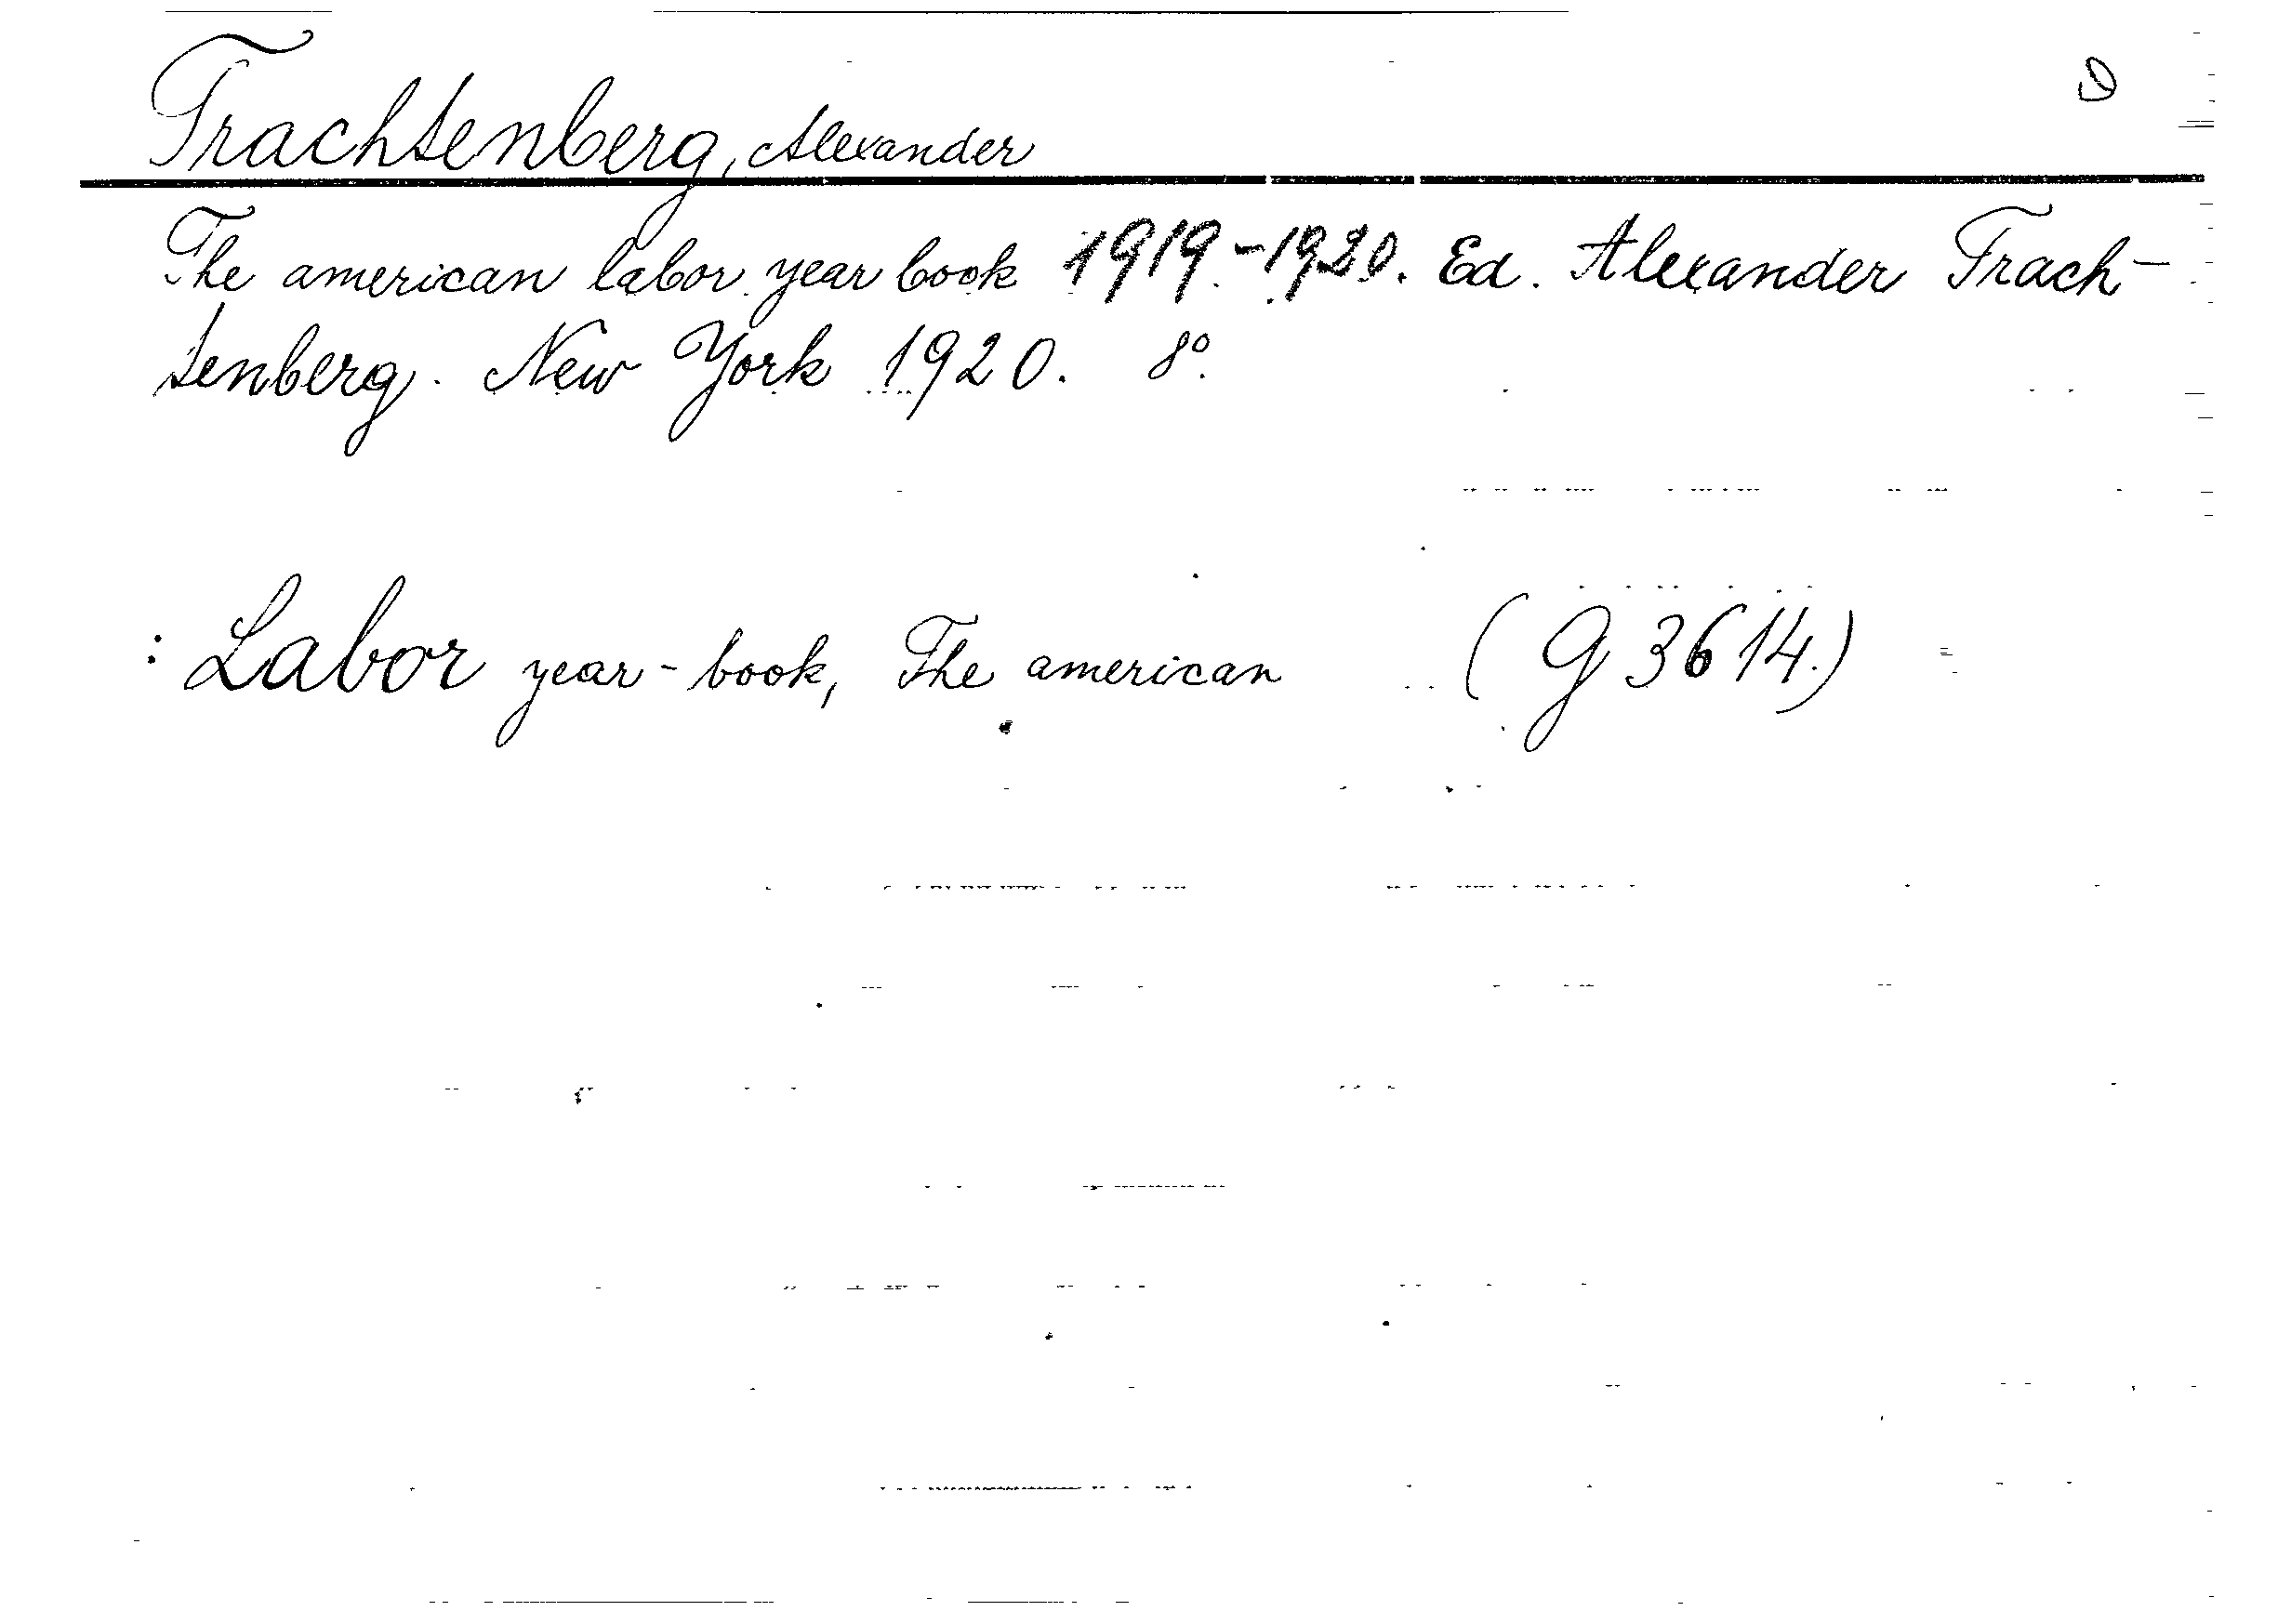 Trachtenberg, Alexander
The american labor year book 1919-1920. Ed. Alexander Trach-
tenberg. New York 1920. 8°.
: Labor year-book, The american (G 3614.)